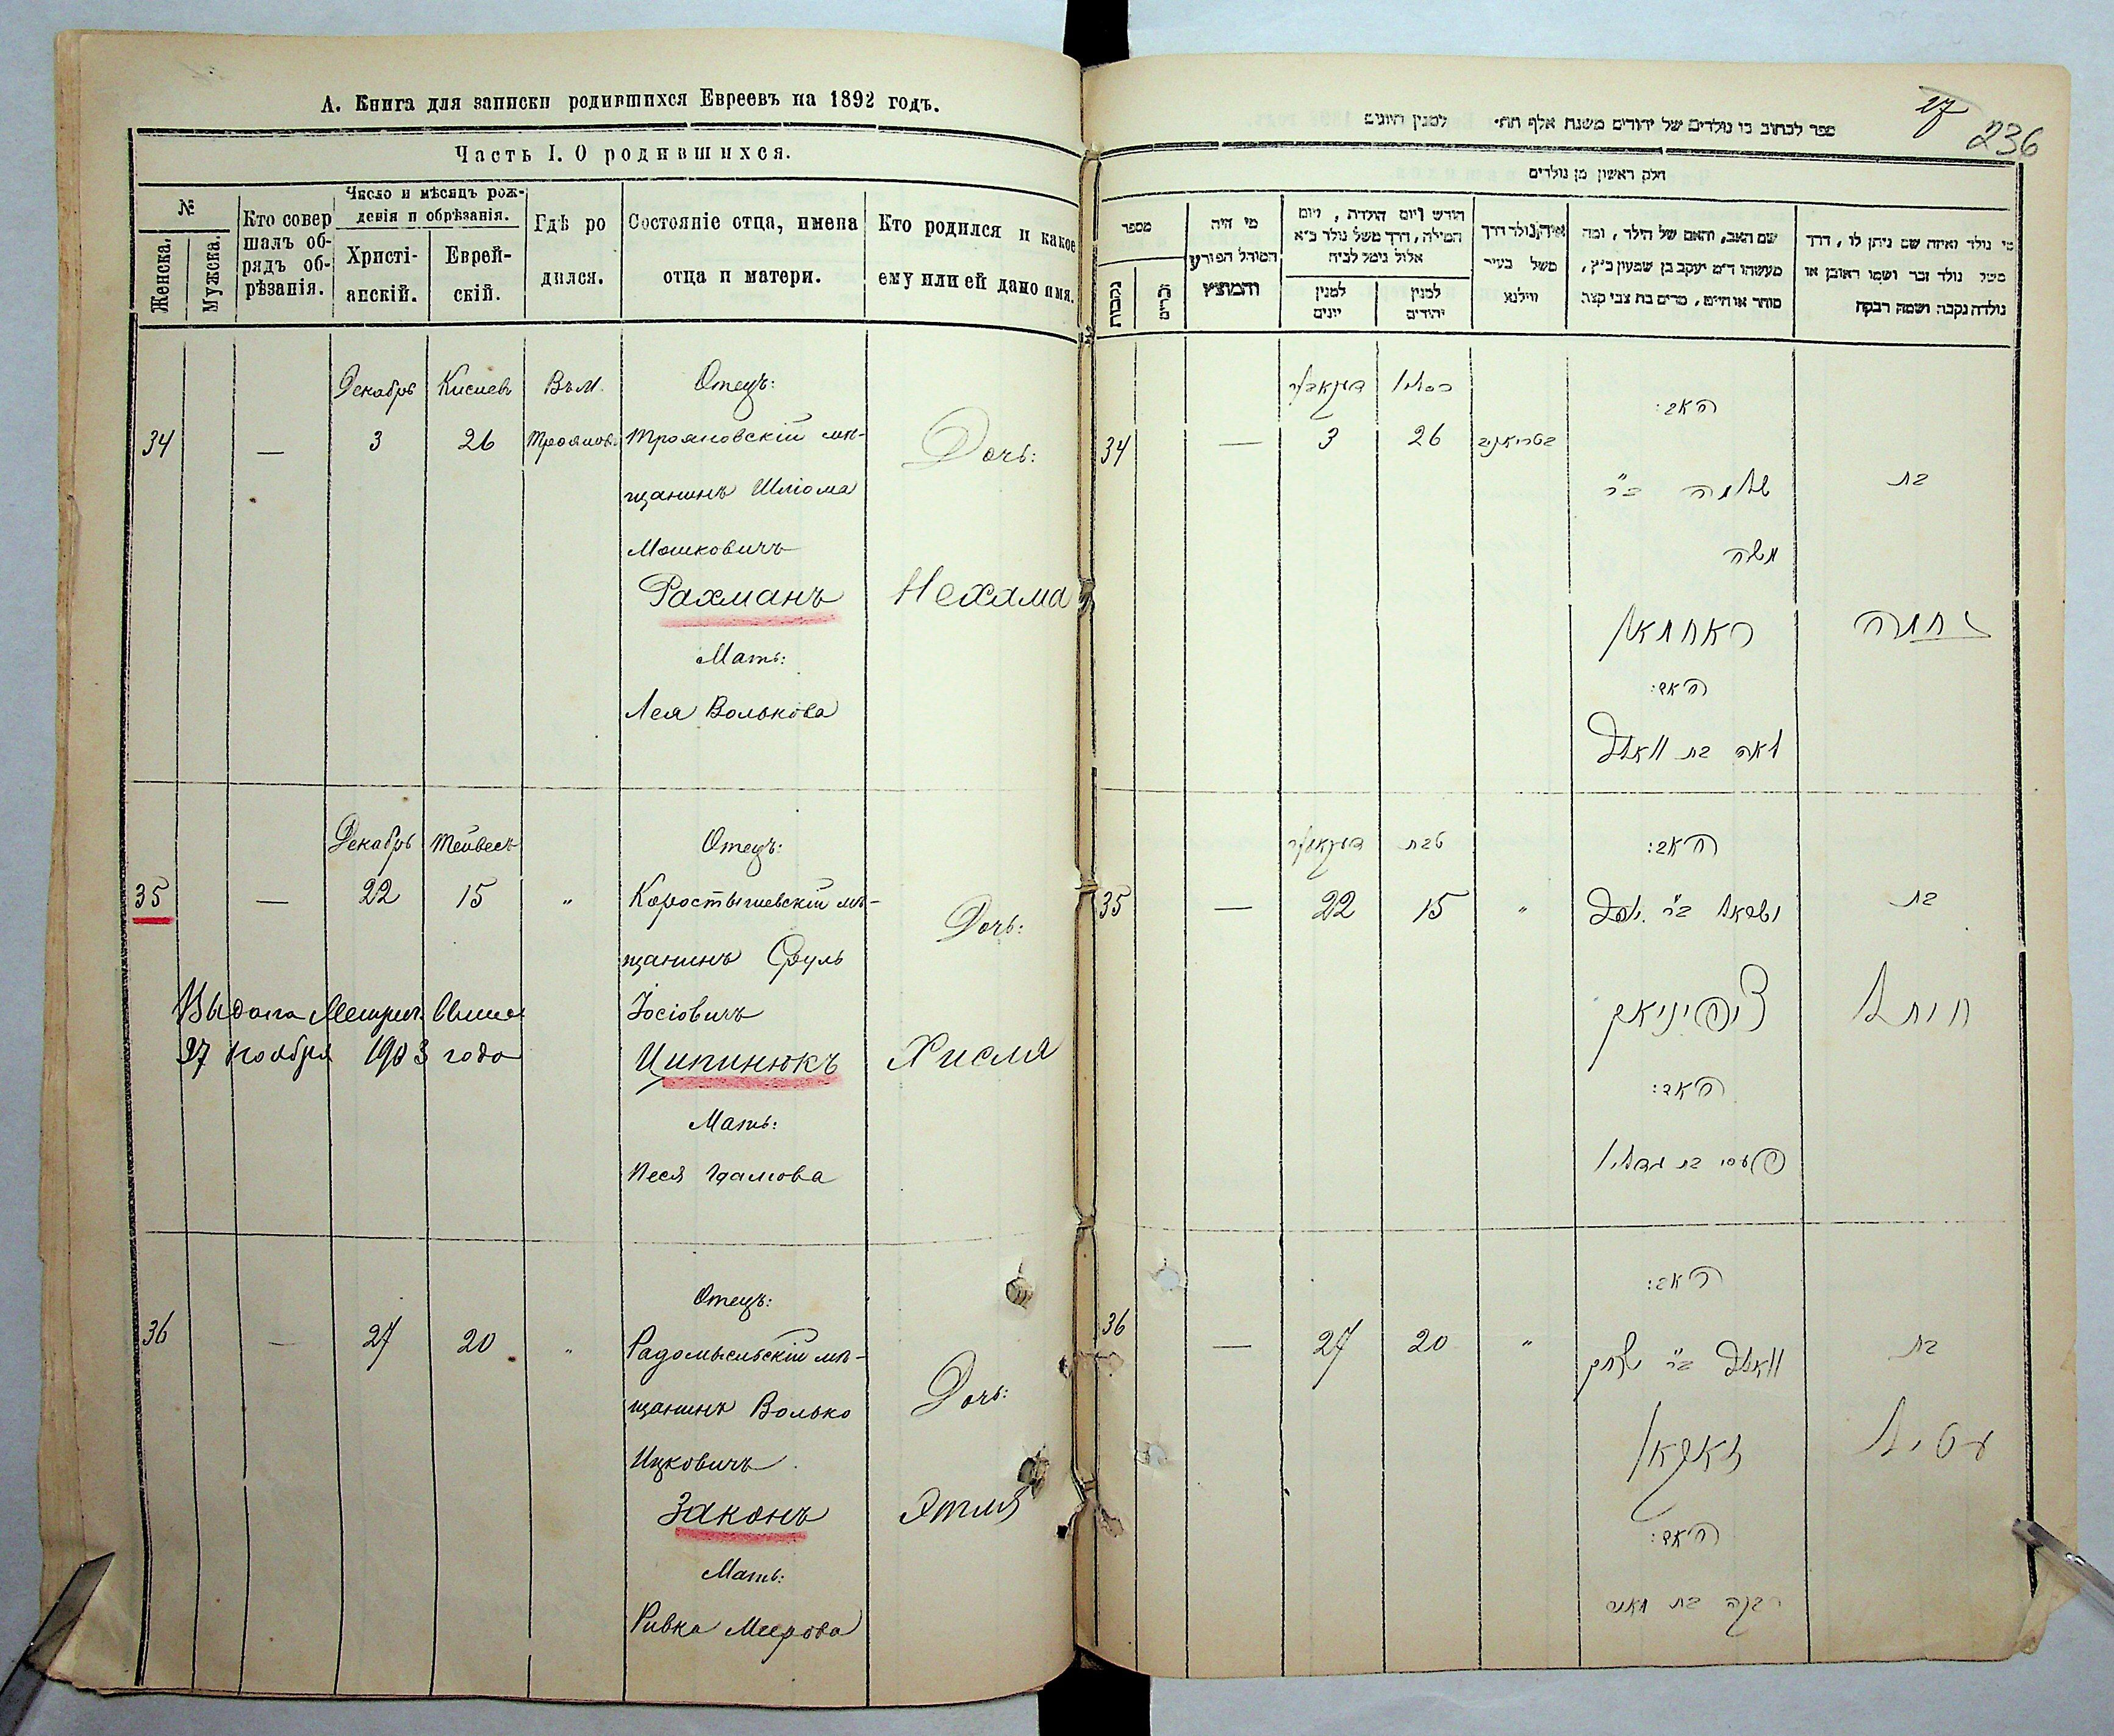 А. Книга для записки родившихся Евреевъ на 1892 годъ.
Часть I. О родившихся.
№
Женска.
Мужска.
Кто совер
шалъ об-
рядъ об-
рѣзанія.
Число и мѣсяцъ рож-
денія и обрѣзанія.
Христі-
анскій.
Еврей-
скій.
Гдѣ ро
дился.
Состояніе отца, имена
отца и матери.
Кто родился и какое
ему или ей дано имя.
Декабрь Кислевъ Въ м. Отецъ:
34 — 3 26 Троянов. Трояновскій мѣ-
щанинъ Шліома
Мошковичъ
Рахманъ
Мать:
Лея Волькова
Дочь:
Нехама
Декабрь Тейвесъ Отецъ:
35 — 22 15 „ Коростышевскій мѣ-
щанинъ Сруль
Іосіовичъ
Ципинюкъ
Мать:
Песя
Дочь:
Хисля
Выдана Метрич.
27 Ноября 1903 года
Отецъ:
36 — 27 20 „ Радомысльскій мѣ-
щанинъ Волько
Ицковичъ
Законъ
Мать:
Ривка Меерова
Дочь:
Этля
27
236
ספר לכתוב בו נולדים של יהודים משנת אלף תת׳ למנין היונים
חלק ראשון מן נולדים
מספר
נקבות
זכרים
מי היה
המוהל הפורע
והמוצץ
חודש ויום הולדת, ויום
המילה, דרך משל נולד כ״א
אלול נימל לב״ח
למנין
יונים
למנין
יהודים
איה נולד דרך
משל בעיר
ווילנא
שם האב, והאם של הילד, ומה
מעשהו ד״מ יעקב בן שמעון כ״ץ,
סוחר או חייט, מרים בת צבי קצב
מי נולד ואיזה שם ניתן לו, דרך
משל נולד זכר ושמו ראובן או
נולדה נקבה ושמה רבקה
דעקאבער כסליו
האב:
34 — 3 26
שלמה ב״ר
משה
ראחמאן
האם:
לאה בת וואלף
בת
נחמה
דעקאבער טבת
האב:
35 — 22 15 „ ישראל ב״ר יוסף
ציפיניאק
האם:
פעסי בת גדליו
בת
36 — 27 20 „
האב:
וואלף ב״ר יצחק
זאקאן
האם:
רבקה בת מאיר
בת
עטיל